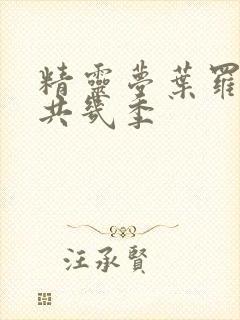 精靈夢葉羅
共幾季
汪承賢